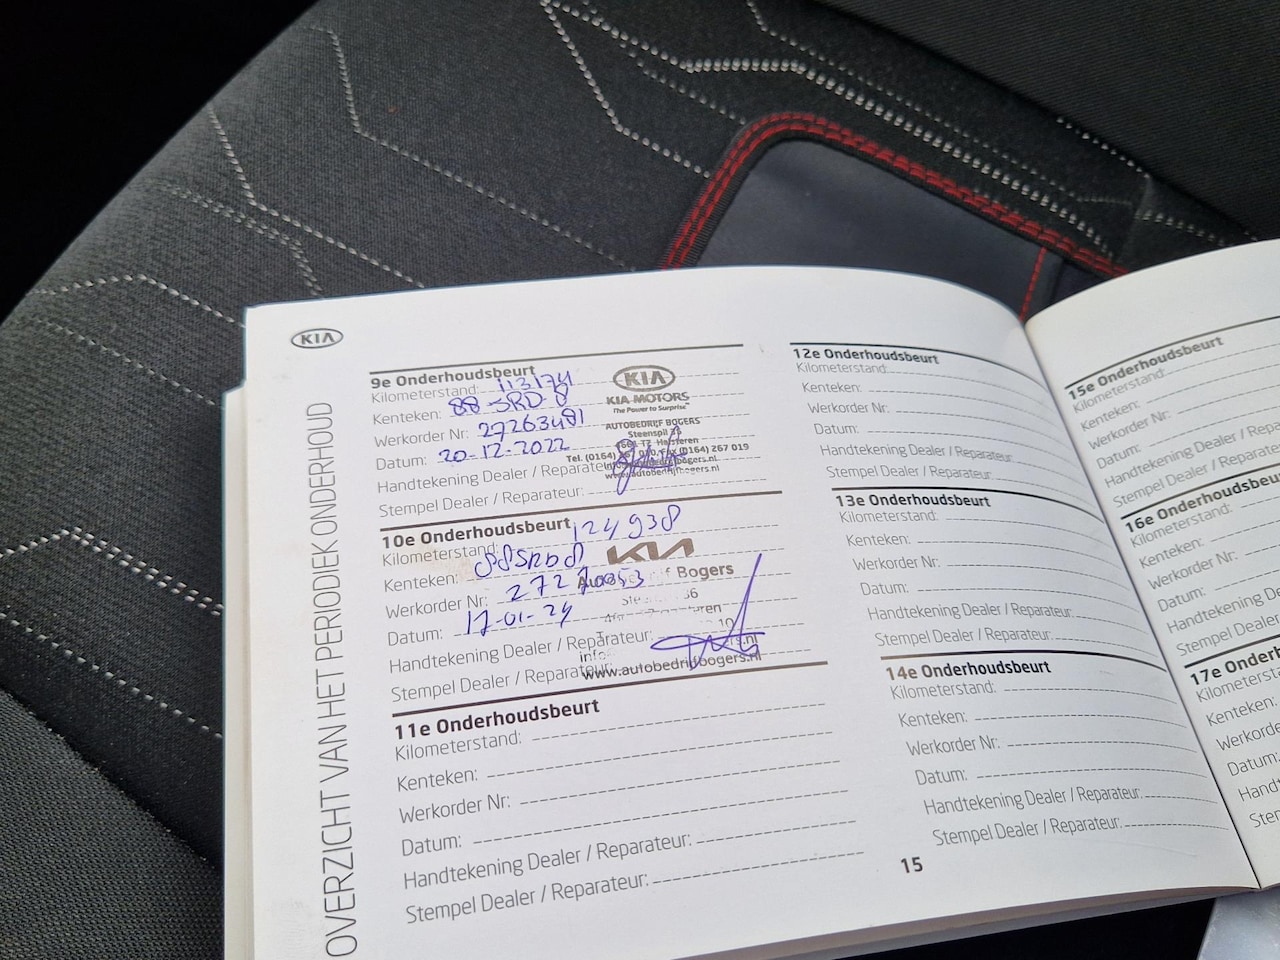 KIA
OVERZICHT VAN HET PERIODIEK ONDERHOUD
9e Onderhoudsbeurt
Kilometerstand: 113174
Kenteken: 88-SRD-8
Werkorder Nr: 27263481
Datum: 20-12-2022
Handtekening Dealer / Reparateur:
Stempel Dealer / Reparateur:
KIA
KIA MOTORS
The Power to Surprise
AUTOBEDRIJF BOGERS
Steenspil
Halsteren
Tel. (0164) Fax (0164) 267 019
www.autobedrijfbogers.nl
10e Onderhoudsbeurt
Kilometerstand: 124938
Kenteken: 88SRD8
Werkorder Nr: 27270053
Datum: 17-01-24
Handtekening Dealer / Reparateur:
Stempel Dealer / Reparateur:
KIA
Bogers
www.autobedrijfbogers.nl
11e Onderhoudsbeurt
Kilometerstand:
Kenteken:
Werkorder Nr:
Datum:
Handtekening Dealer / Reparateur:
Stempel Dealer / Reparateur:
12e Onderhoudsbeurt
Kilometerstand:
Kenteken:
Werkorder Nr:
Datum:
Handtekening Dealer / Reparateur:
Stempel Dealer / Reparateur:
13e Onderhoudsbeurt
Kilometerstand:
Kenteken:
Werkorder Nr:
Datum:
Handtekening Dealer / Reparateur:
Stempel Dealer / Reparateur:
14e Onderhoudsbeurt
Kilometerstand:
Kenteken:
Werkorder Nr:
Datum:
Handtekening Dealer / Reparateur:
Stempel Dealer / Reparateur:
15
15e Onderhoudsbeurt
Kilometerstand:
Kenteken:
Werkorder Nr:
Datum:
Handtekening Dealer / Repara
Stempel Dealer / Reparateur:
16e Onderhoudsbeu
Kilometerstand:
Kenteken:
Werkorder Nr:
Datum:
Handtekening De
Stempel Dealer
17e Onderh
Kilometerst
Kenteken:
Werkorde
Datum:
Hand
Ster